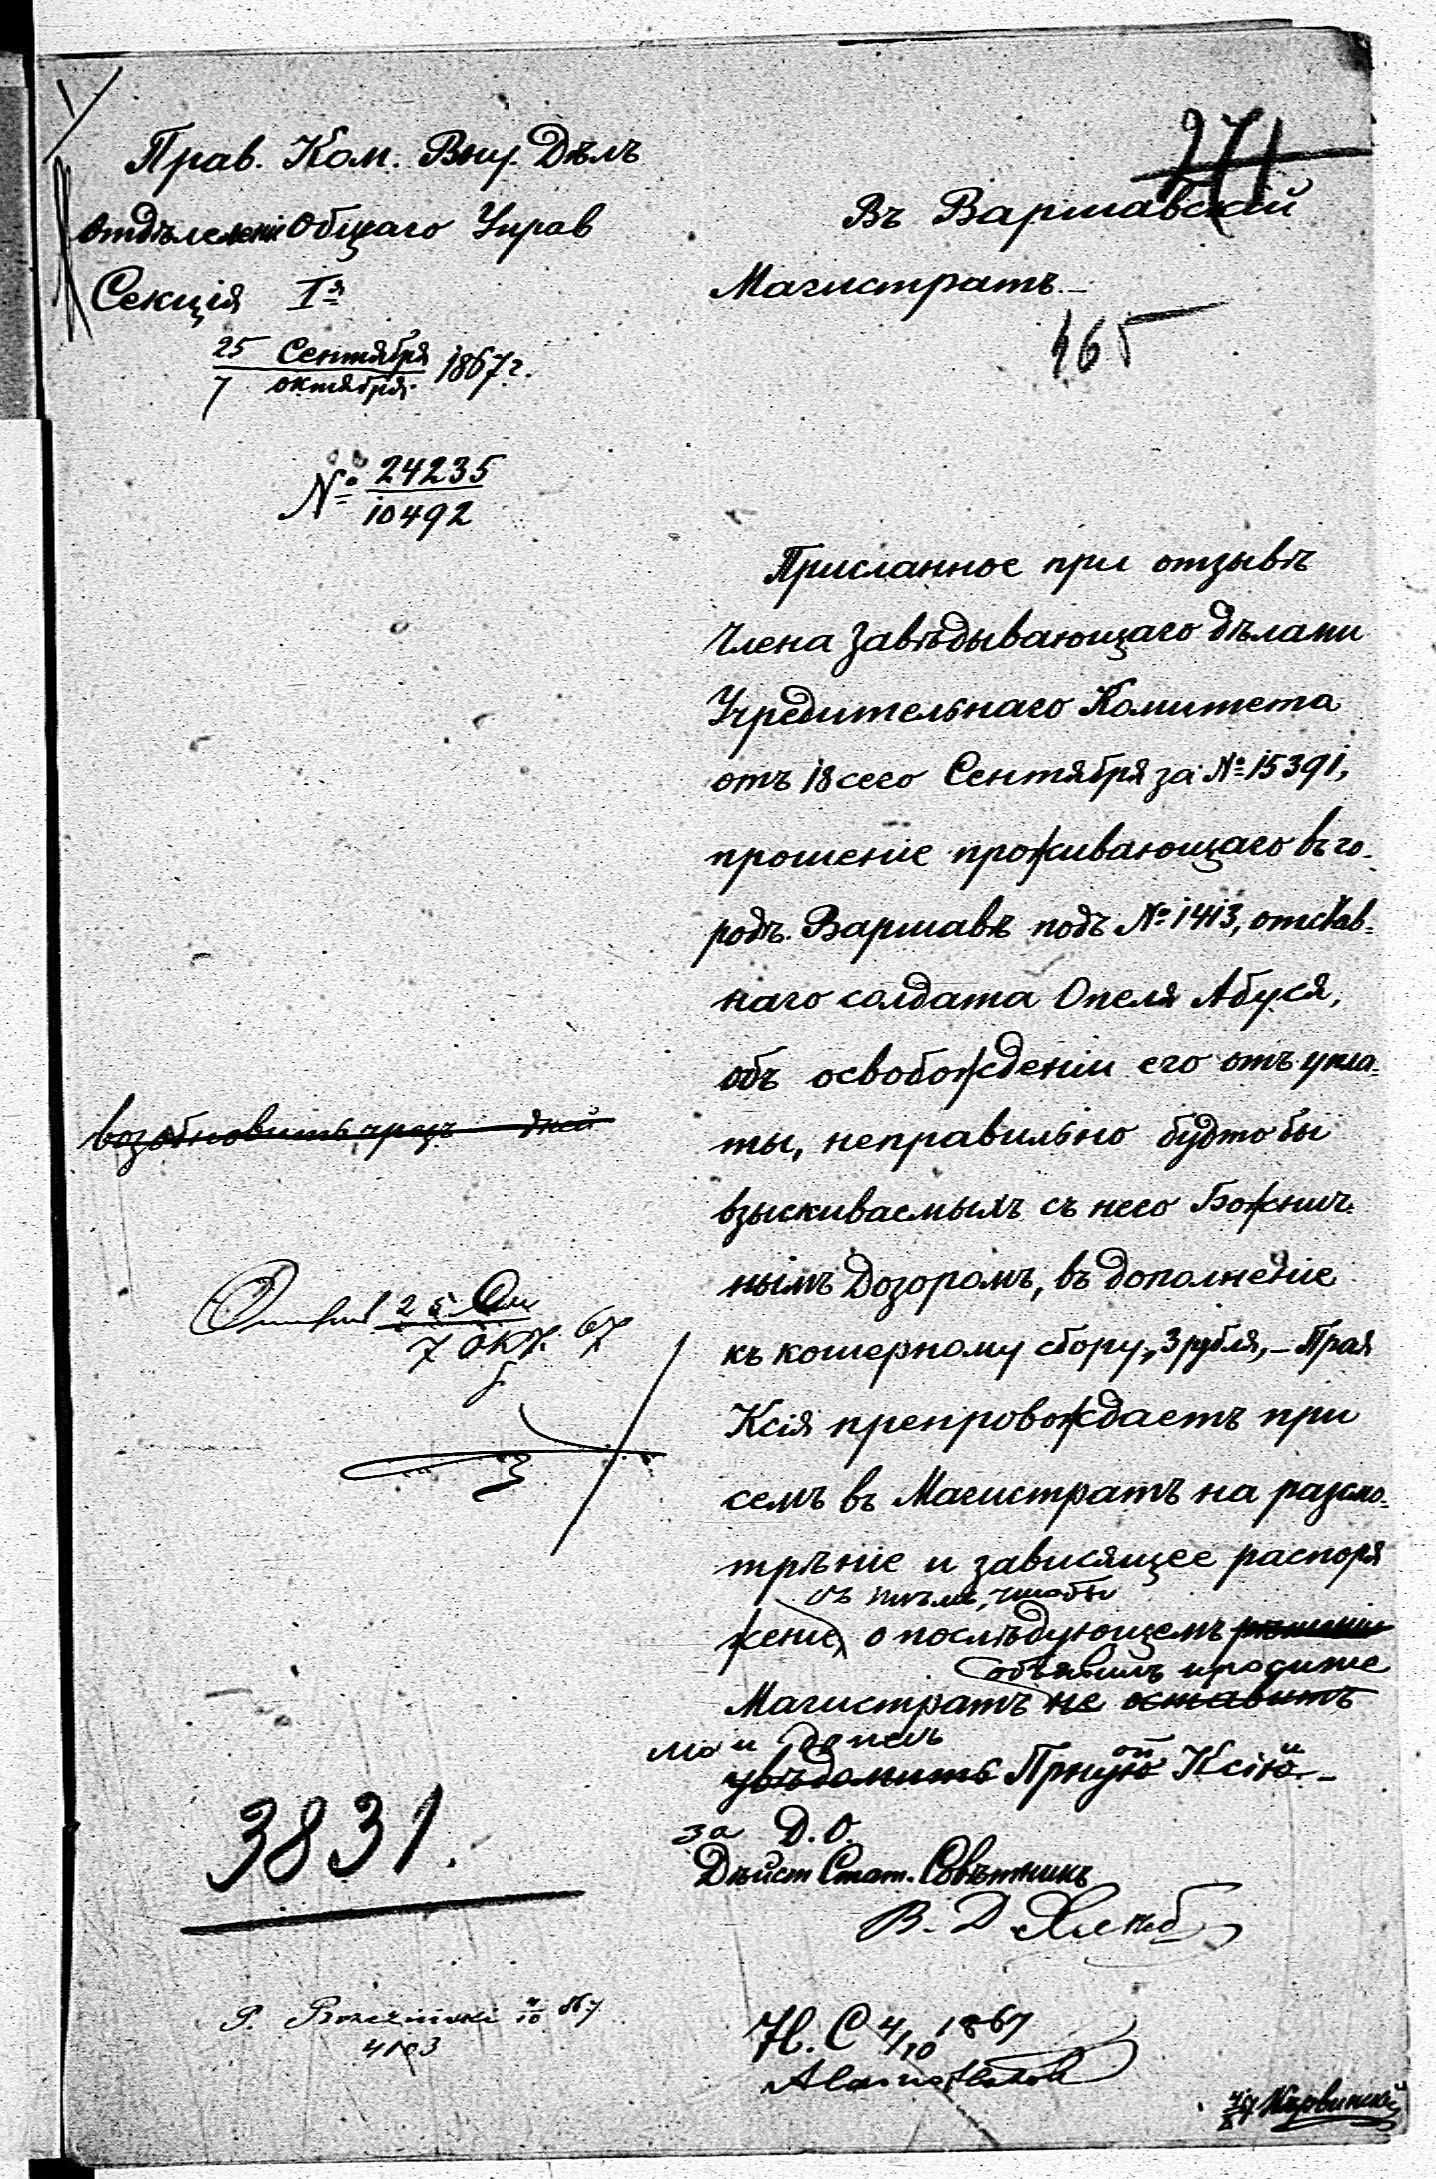 Прав. Ком. Вну. Дѣлъ
Отдѣленіе Общаго Управ
Секція Iя
25 Сентября
7 октября 1867 г.
№ 24235
10492
271
Въ Варшавскій
Магистратъ.
465
Присланное при отзывѣ
Члена Завѣдывающаго дѣлами
Учредительнаго Комитета
отъ 18 сего Сентября за № 15391,
прошеніе проживающаго въ го-
родѣ Варшавѣ подъ № 1413, отстав-
наго солдата Опеля Абуся,
объ освобожденіи его отъ упла-
ты, неправильно будто бы
взыскиваемыхъ съ него Божнич-
нымъ Дозоромъ, въ дополненіе
къ кошерному сбору, 3 рубля, – Прая
Ксія препровождаетъ при
семъ въ Магистратъ на разсмо-
трѣніе и зависящее распоря
съ тѣмъ, чтобы
женіе, о послѣдующемъ рѣшеніи
объявилъ просите
Магистратъ не оставитъ
лю и донесъ
увѣдомить Прную ой Ксію и.–
за Д. О.
Дѣйст Стат. Совѣтникъ
возобновить чрезъ дней
25 Сен
7 окт. 67
3831.
4103
Н. С 4/10 1867